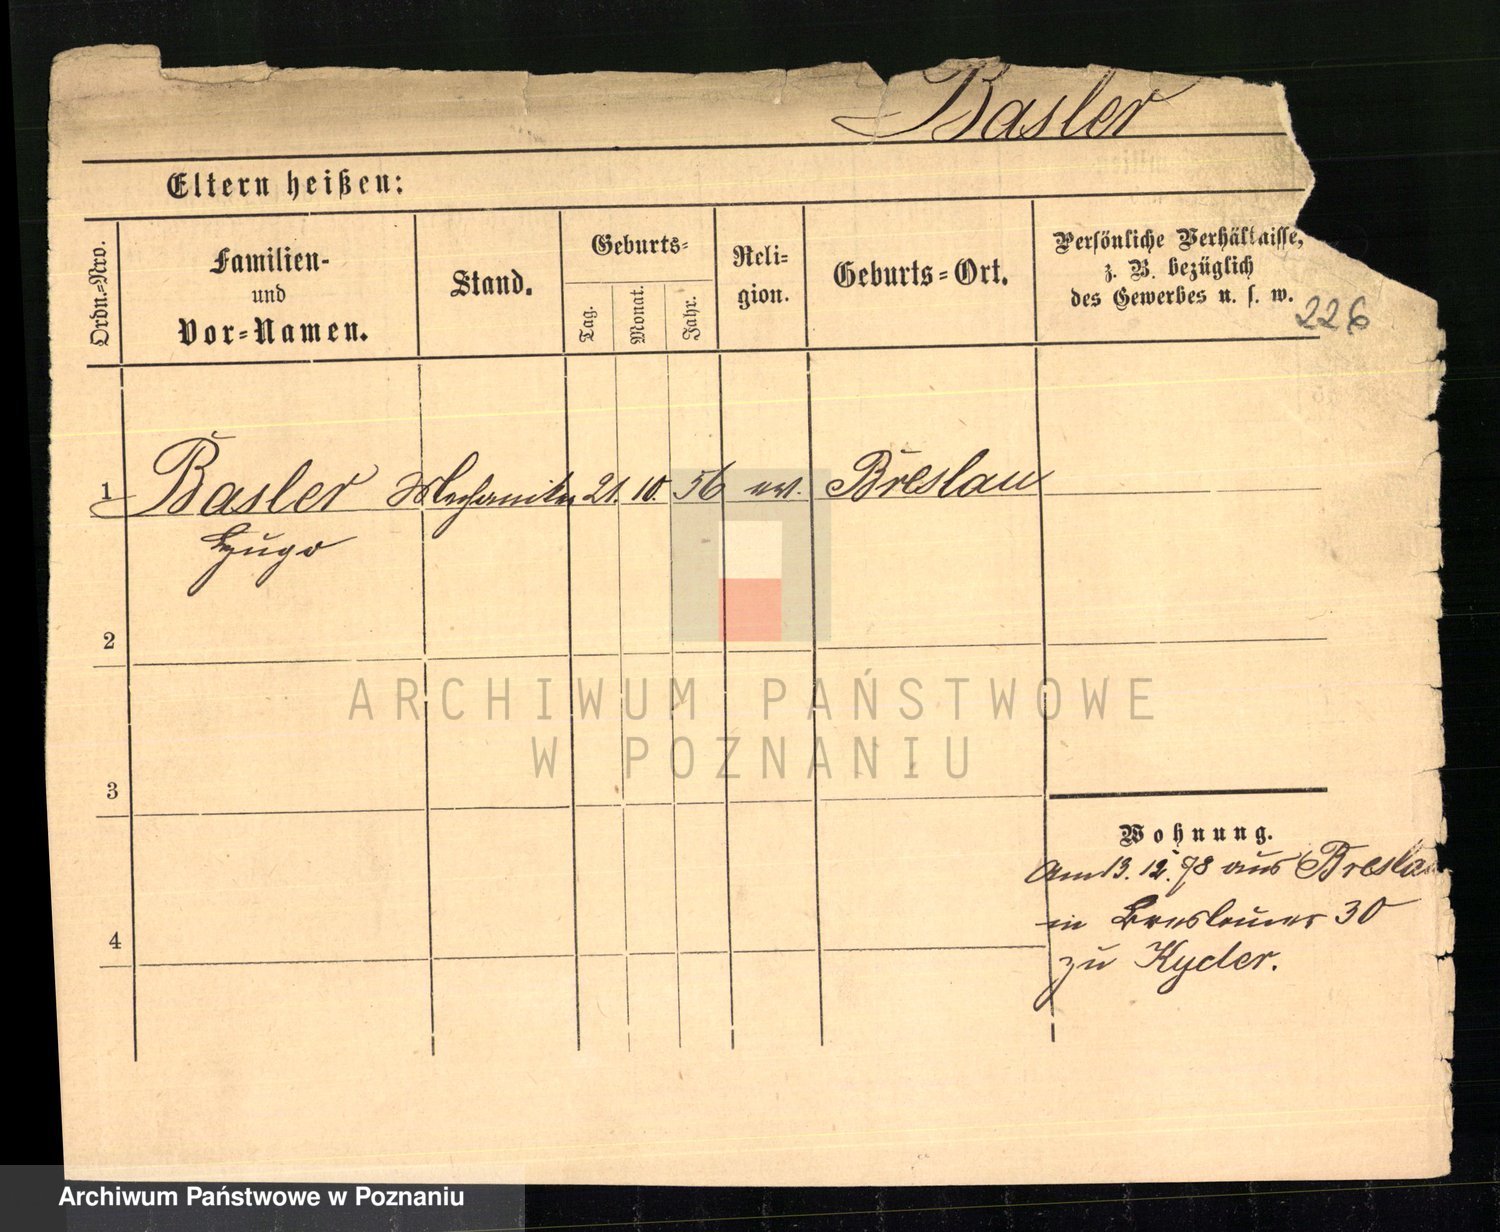 Basler
Eltern heißen:
Ordn.-Nro.
Familien-
und
Vor-Namen.
Stand.
Geburts-
Tag.
Monat.
Jahr.
Reli-
gion.
Geburts-Ort.
Persönliche Verhältnisse,
z. B. bezüglich
des Gewerbes u. s. w.
226
1 Basler Mechaniker 21. 10. 56 ev. Breslau
Hugo
2
3
4
Wohnung.
Am 13. 12. 78 aus Breslau
in Breslauer 30
zu Kyder.
ARCHIWUM PAŃSTWOWE
W POZNANIU
Archiwum Państwowe w Poznaniu